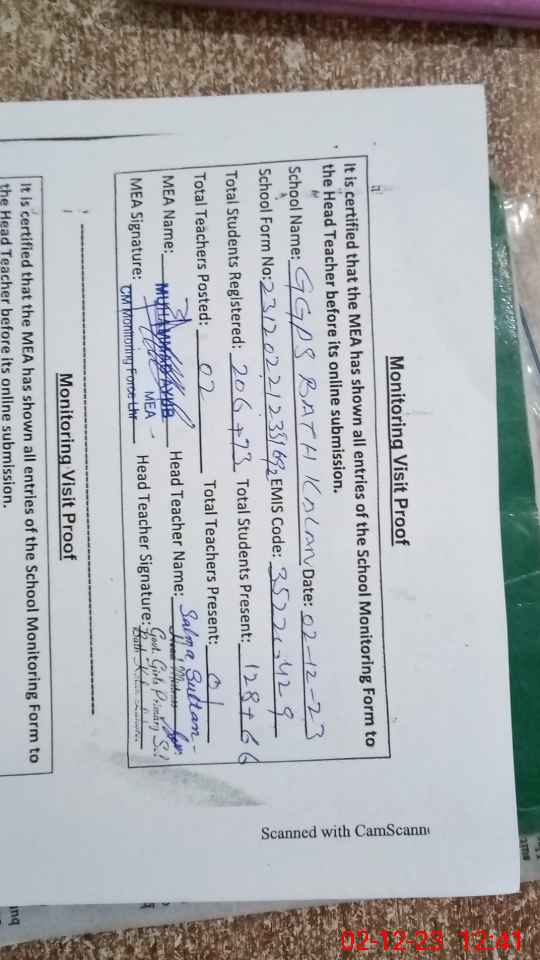 Monitoring Visit Proof
It is certified that the MEA has shown all entries of the School Monitoring Form to
the Head Teacher before its online submission.
School Name: GGPS BATH KALAN Date: 02-12-23
School Form No: EMIS Code:
Total Students Registered: 206+73 Total Students Present: 128+66
Total Teachers Posted: 02 Total Teachers Present: 01
MEA Name: MUHAMMAD AYUB Head Teacher Name: Salma Sultan
MEA
MEA Signature: CM Monitoring Force Lhr Head Teacher Signature:
Govt. Girls Primary Scl
Monitoring Visit Proof
It is certified that the MEA has shown all entries of the School Monitoring Form to
the Head Teacher before its online submission.
Scanned with CamScann
02-12-23 12:41